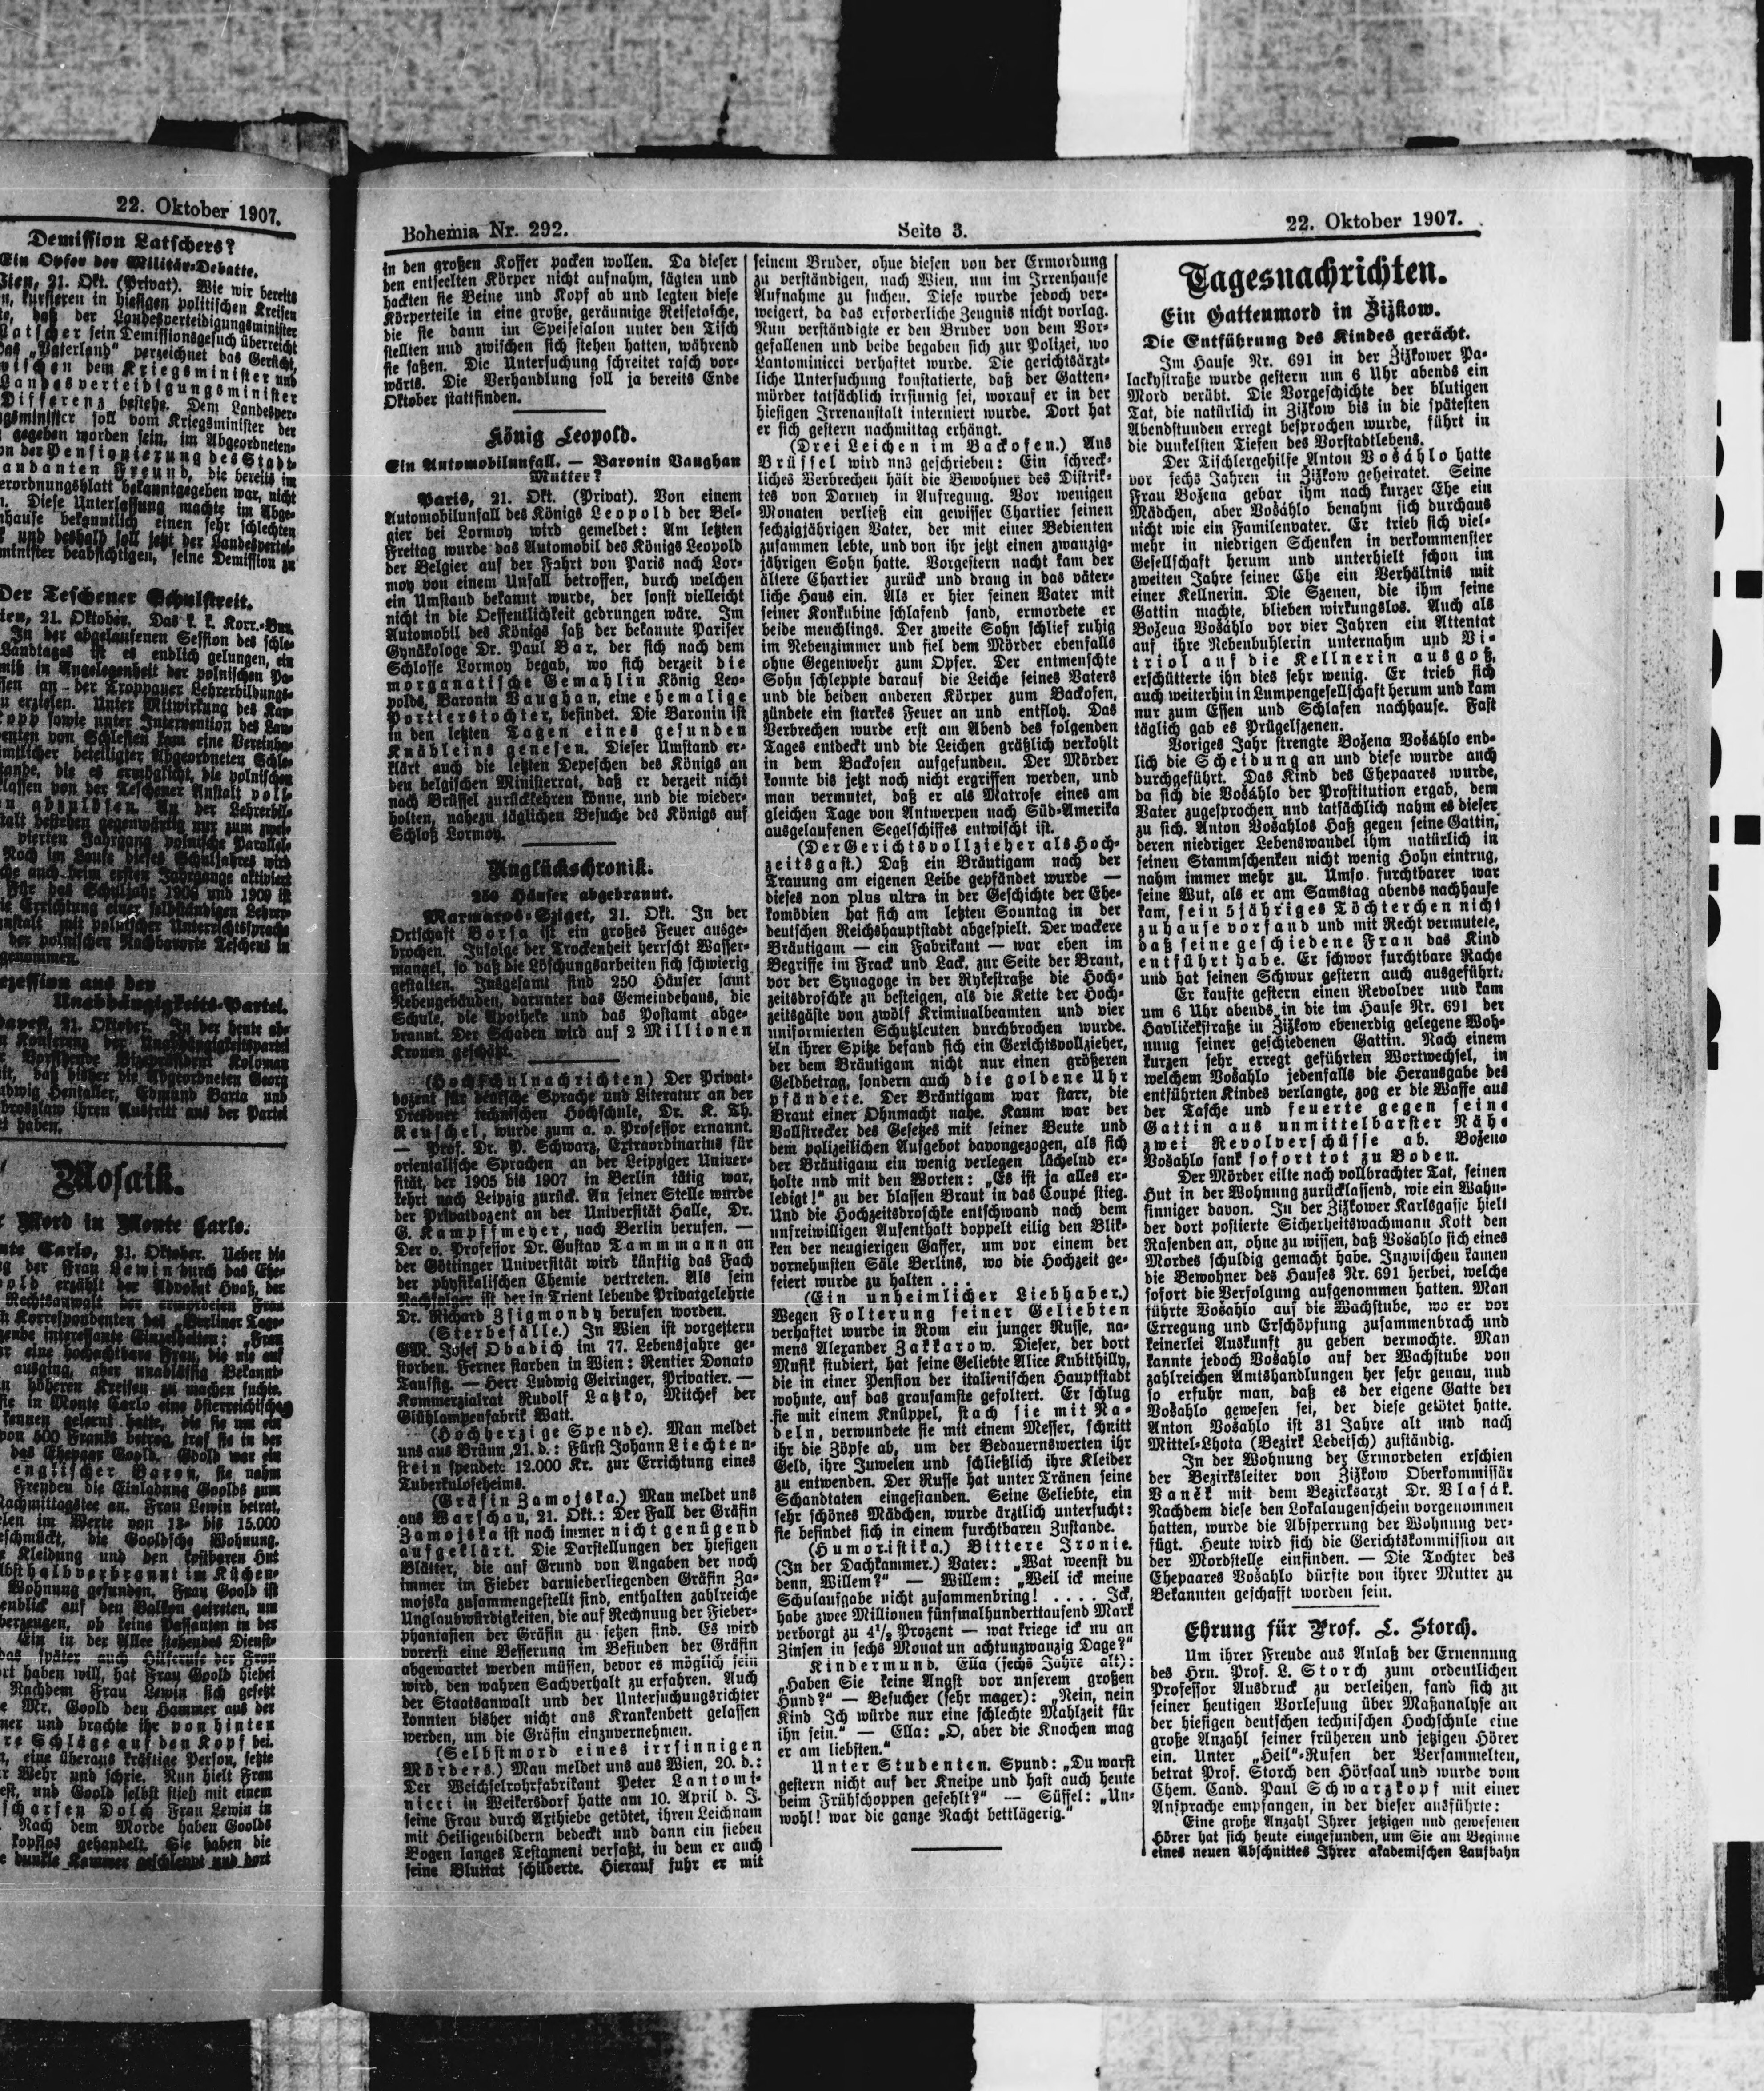 22. Oktober 1907.
Demission Latschers?
Ein Opfer der Militär-Debatte.
21. Okt. (Privat). Wie wir bereits
kursieren in hiesigen politischen Kreisen
daß der Landesverteidigungsminister
sein Demissionsgesuch überreicht
"Vaterland" verzeichnet das Gerücht,
dem Kriegsminister und
Landesverteidigungsminister
Differenz bestehe. Dem Landesver-
soll vom Kriegsminister der
gegeben worden sein, im Abgeordneten-
der Pensionierung des Stadt-
Freund, die bereits im
bekanntgegeben war, nicht
Diese Unterlassung machte im Abge-
bekanntlich einen sehr schlechten
und deshalb soll jetzt der Landesvertei-
beabsichtigen, seine Demission zu
Der Teschener Schulstreit.
21. Oktober. Das k. k. Korr.-Bur.
In der abgelaufenen Session des schle-
ist es endlich gelungen, ein
in Angelegenheit der polnischen Pa-
an der Troppauer Lehrerbildungs-
erzielen. Unter Mitwirkung des
sowie unter Intervention des
von Schlesien kam eine
beteiligter Abgeordneten
die es ermöglicht, die polnischen
von der Teschener Anstalt
abzulösen. An der
bestehen gegenwärtig nur zum
Jahrgang polnische Parallel-
Noch im Laufe dieses Schuljahres wird
auch beim ersten Jahrgange aktiviert
Für das Schuljahr 1908 und 1909 ist
Errichtung einer selbständigen Lehrer-
mit polnischer Unterrichtssprache
der polnischen Nachbarorte Teschens in
genommen.
aus der
Unabhängigkeits-Partei.
21. Oktober. In der heute ab-
Konferenz der Unabhängigkeitspartei
Koloman
daß bisher die Abgeordneten Georg
Edmund Barta und
ihren Austritt aus der Partei
haben.
Mosaik.
Mord in Monte Carlo.
Carlo, 21. Oktober. Ueber die
der Frau Lewin durch das Ehe-
erzählt der Advokat
der ermordeten Frau
Korrespondenten des "Berliner Tage-
interessante Einzelheiten: "Frau
eine hochachtbare Frau, die nie auf
ausging, aber unablässig Bekannt-
höheren Kreisen zu machen suchte.
in Monte Carlo eine österreichische
kennen gelernt hatte, die sie um ein
500 Franks betrog, traf sie in der
das Ehepaar Goold. Goold war ein
englischer Baron, sie nahm
Freuden die Einladung Goolds zum
Nachmittagstee an. Frau Lewin betrat,
im Werte von 12- bis 15.000
geschmückt, die Gooldsche Wohnung.
Kleidung und den kostbaren Hut
halbverbrannt im Küchen-
Wohnung gefunden. Frau Goold ist
auf den Balkon getreten, um
ob keine Passanten in der
Ein in der Allee stehendes Dienst-
später auch Hilferufe der Frau
haben will, hat Frau Goold hiebei
Nachdem Frau Lewin sich gesetzt
Mr. Goold den Hammer aus der
und brachte ihr von hinten
Schläge auf den Kopf bei.
eine überaus kräftige Person, setzte
Wehr und schrie. Nun hielt Frau
und Goold selbst stieß mit einem
scharfen Dolch Frau Lewin in
Nach dem Morde haben Goolds
kopflos gehandelt. Sie haben die
dunkle Kammer geschleppt und dort
Bohemia Nr. 292.
Seite 3.
22. Oktober 1907.
in den großen Koffer packen wollen. Da dieser
den entseelten Körper nicht aufnahm, sägten und
hackten sie Beine und Kopf ab und legten diese
Körperteile in eine große, geräumige Reisetasche,
die sie dann im Speisesalon unter den Tisch
stellten und zwischen sich stehen hatten, während
sie saßen. Die Untersuchung schreitet rasch vor-
wärts. Die Verhandlung soll ja bereits Ende
Oktober stattfinden.
König Leopold.
Ein Automobilunfall. — Baronin Vaughan
Mutter?
Paris, 21. Okt. (Privat). Von einem
Automobilunfall des Königs Leopold der Bel-
gier bei Lormoy wird gemeldet: Am letzten
Freitag wurde das Automobil des Königs Leopold
der Belgier auf der Fahrt von Paris nach Lor-
moy von einem Unfall betroffen, durch welchen
ein Umstand bekannt wurde, der sonst vielleicht
nicht in die Oeffentlichkeit gedrungen wäre. Im
Automobil des Königs saß der bekannte Pariser
Gynäkologe Dr. Paul Bar, der sich nach dem
Schlosse Lormoy begab, wo sich derzeit die
morganatische Gemahlin König Leo-
polds, Baronin Vaughan, eine ehemalige
Portierstochter, befindet. Die Baronin ist
in den letzten Tagen eines gesunden
Knäbleins genesen. Dieser Umstand er-
klärt auch die letzten Depeschen des Königs an
den belgischen Ministerrat, daß er derzeit nicht
nach Brüssel zurückkehren könne, und die wieder-
holten, nahezu täglichen Besuche des Königs auf
Schloß Lormoy.
Unglückschronik.
250 Häuser abgebrannt.
Marmaros-Sziget, 21. Okt. In der
Ortschaft Borsa ist ein großes Feuer ausge-
brochen. Infolge der Trockenheit herrscht Wasser-
mangel, so daß die Löschungsarbeiten sich schwierig
gestalten. Insgesamt sind 250 Häuser samt
Nebengebäuden, darunter das Gemeindehaus, die
Schule, die Apotheke und das Postamt abge-
brannt. Der Schaden wird auf 2 Millionen
Kronen geschätzt.
(Hochschulnachrichten) Der Privat-
dozent für deutsche Sprache und Literatur an der
Dresdner technischen Hochschule, Dr. K. Th.
Reuschel, wurde zum a. o. Professor ernannt.
— Prof. Dr. P. Schwarz, Extraordinarius für
orientalische Sprachen an der Leipziger Univer-
sität, der 1905 bis 1907 in Berlin tätig war,
kehrt nach Leipzig zurück. An seiner Stelle wurde
der Privatdozent an der Universität Halle, Dr.
G. Kampffmeyer, nach Berlin berufen. —
Der o. Professor Dr. Gustav Tammmann an
der Göttinger Universität wird künftig das Fach
der physikalischen Chemie vertreten. Als sein
Nachfolger ist der in Trient lebende Privatgelehrte
Dr. Richard Zsigmondy berufen worden.
(Sterbefälle.) In Wien ist vorgestern
GM. Josef Obadich im 77. Lebensjahre ge-
storben. Ferner starben in Wien: Rentier Donato
Taussig. — Herr Ludwig Geiringer, Privatier. —
Kommerzialrat Rudolf Latzko, Mitchef der
Glühlampenfabrik Watt.
(Hochherzige Spende). Man meldet
uns aus Brünn, 21. d.: Fürst Johann Liechten-
stein spendete 12.000 Kr. zur Errichtung eines
Tuberkuloseheims.
(Gräfin Zamojska.) Man meldet uns
aus Warschau, 21. Okt.: Der Fall der Gräfin
Zamojska ist noch immer nicht genügend
aufgeklärt. Die Darstellungen der hiesigen
Blätter, die auf Grund von Angaben der noch
immer im Fieber darniederliegenden Gräfin Za-
mojska zusammengestellt sind, enthalten zahlreiche
Unglaubwürdigkeiten, die auf Rechnung der Fieber-
phantasien der Gräfin zu setzen sind. Es wird
vorerst eine Besserung im Befinden der Gräfin
abgewartet werden müssen, bevor es möglich sein
wird, den wahren Sachverhalt zu erfahren. Auch
der Staatsanwalt und der Untersuchungsrichter
konnten bisher nicht aus Krankenbett gelassen
werden, um die Gräfin einzuvernehmen.
(Selbstmord eines irrsinnigen
Mörders.) Man meldet uns aus Wien, 20. d.:
Der Weichselrohrfabrikant Peter Lantomi-
nicci in Weikersdorf hatte am 10. April d. J.
seine Frau durch Axthiebe getötet, ihren Leichnam
mit Heiligenbildern bedeckt und dann ein sieben
Bogen langes Testament verfaßt, in dem er auch
seine Bluttat schilderte. Hierauf fuhr er mit
seinem Bruder, ohne diesen von der Ermordung
zu verständigen, nach Wien, um im Irrenhause
Aufnahme zu suchen. Diese wurde jedoch ver-
weigert, da das erforderliche Zeugnis nicht vorlag.
Nun verständigte er den Bruder von dem Vor-
gefallenen und beide begaben sich zur Polizei, wo
Lantominicci verhaftet wurde. Die gerichtsärzt-
liche Untersuchung konstatierte, daß der Gatten-
mörder tatsächlich irrsinnig sei, worauf er in der
hiesigen Irrenanstalt interniert wurde. Dort hat
er sich gestern nachmittag erhängt.
(Drei Leichen im Backofen.) Aus
Brüssel wird uns geschrieben: Ein schreck-
liches Verbrechen hält die Bewohner des Distrik-
tes von Darney in Aufregung. Vor wenigen
Monaten verließ ein gewisser Chartier seinen
sechzigjährigen Vater, der mit einer Bedienten
zusammen lebte, und von ihr jetzt einen zwanzig-
jährigen Sohn hatte. Vorgestern nacht kam der
ältere Chartier zurück und drang in das väter-
liche Haus ein. Als er hier seinen Vater mit
seiner Konkubine schlafend fand, ermordete er
beide meuchlings. Der zweite Sohn schlief ruhig
im Nebenzimmer und fiel dem Mörder ebenfalls
ohne Gegenwehr zum Opfer. Der entmenschte
Sohn schleppte darauf die Leiche seines Vaters
und die beiden anderen Körper zum Backofen,
zündete ein starkes Feuer an und entfloh. Das
Verbrechen wurde erst am Abend des folgenden
Tages entdeckt und die Leichen gräßlich verkohlt
in dem Backofen aufgefunden. Der Mörder
konnte bis jetzt noch nicht ergriffen werden, und
man vermutet, daß er als Matrose eines am
gleichen Tage von Antwerpen nach Süd-Amerika
ausgelaufenen Segelschiffes entwischt ist.
(Der Gerichtsvollzieher als Hoch-
zeitsgast.) Daß ein Bräutigam nach der
Trauung am eigenen Leibe gepfändet wurde —
dieses non plus ultra in der Geschichte der Ehe-
komödien hat sich am letzten Sonntag in der
deutschen Reichshauptstadt abgespielt. Der wackere
Bräutigam — ein Fabrikant — war eben im
Begriffe im Frack und Lack, zur Seite der Braut,
vor der Synagoge in der Rykestraße die Hoch-
zeitsdroschke zu besteigen, als die Kette der Hoch-
zeitsgäste von zwölf Kriminalbeamten und vier
uniformierten Schutzleuten durchbrochen wurde.
An ihrer Spitze befand sich ein Gerichtsvollzieher,
der dem Bräutigam nicht nur einen größeren
Geldbetrag, sondern auch die goldene Uhr
pfändete. Der Bräutigam war starr, die
Braut einer Ohnmacht nahe. Kaum war der
Vollstrecker des Gesetzes mit seiner Beute und
dem polizeilichen Aufgebot davongezogen, als sich
der Bräutigam ein wenig verlegen lächelnd er-
holte und mit den Worten: „Es ist ja alles er-
ledigt!" zu der blassen Braut in das Coupé stieg.
Und die Hochzeitsdroschke entschwand nach dem
unfreiwilligen Aufenthalt doppelt eilig den Blik-
ken der neugierigen Gaffer, um vor einem der
vornehmsten Säle Berlins, wo die Hochzeit ge-
feiert wurde zu halten . . .
(Ein unheimlicher Liebhaber.)
Wegen Folterung seiner Geliebten
verhaftet wurde in Rom ein junger Russe, na-
mens Alexander Zakkarow. Dieser, der dort
Musik studiert, hat seine Geliebte Alice Kubithilly,
die in einer Pension der italienischen Hauptstadt
wohnte, auf das grausamste gefoltert. Er schlug
sie mit einem Knüppel, stach sie mit Na-
deln, verwundete sie mit einem Messer, schnitt
ihr die Zöpfe ab, um der Bedauernswerten ihr
Geld, ihre Juwelen und schließlich ihre Kleider
zu entwenden. Der Russe hat unter Tränen seine
Schandtaten eingestanden. Seine Geliebte, ein
sehr schönes Mädchen, wurde ärztlich untersucht:
sie befindet sich in einem furchtbaren Zustande.
(Humoristika.) Bittere Ironie.
(In der Dachkammer.) Vater: „Wat weenst du
denn, Willem?" — Willem: „Weil ick meine
Schulaufgabe nicht zusammenbring! . . . . Ick,
habe zwee Millionen fünfmalhunderttausend Mark
verborgt zu 4½ Prozent — wat kriege ick nu an
Zinsen in sechs Monat un achtunzwanzig Dage?"
Kindermund. Ella (sechs Jahre alt):
„Haben Sie keine Angst vor unserem großen
Hund?" — Besucher (sehr mager): „Nein, nein
Kind Ich würde nur eine schlechte Mahlzeit für
ihn sein." — Ella: „O, aber die Knochen mag
er am liebsten."
Unter Studenten. Spund: „Du warst
gestern nicht auf der Kneipe und hast auch heute
beim Frühschoppen gefehlt?" — Süffel: „Un-
wohl! war die ganze Nacht bettlägerig."
Tagesnachrichten.
Ein Gattenmord in Žižkow.
Die Entführung des Kindes gerächt.
Im Hause Nr. 691 in der Žižkower Pa-
lackystraße wurde gestern um 6 Uhr abends ein
Mord verübt. Die Vorgeschichte der blutigen
Tat, die natürlich in Žižkow bis in die spätesten
Abendstunden erregt besprochen wurde, führt in
die dunkelsten Tiefen des Vorstadtlebens.
Der Tischlergehilfe Anton Vošáhlo hatte
vor sechs Jahren in Žižkow geheiratet. Seine
Frau Božena gebar ihm nach kurzer Ehe ein
Mädchen, aber Vošáhlo benahm sich durchaus
nicht wie ein Familenvater. Er trieb sich viel-
mehr in niedrigen Schenken in verkommenster
Gesellschaft herum und unterhielt schon im
zweiten Jahre seiner Ehe ein Verhältnis mit
einer Kellnerin. Die Szenen, die ihm seine
Gattin machte, blieben wirkungslos. Auch als
Božena Vošáhlo vor vier Jahren ein Attentat
auf ihre Nebenbuhlerin unternahm und Vi-
triol auf die Kellnerin ausgoß,
erschütterte ihn dies sehr wenig. Er trieb sich
auch weiterhin in Lumpengesellschaft herum und kam
nur zum Essen und Schlafen nachhause. Fast
täglich gab es Prügelszenen.
Voriges Jahr strengte Božena Vošáhlo end-
lich die Scheidung an und diese wurde auch
durchgeführt. Das Kind des Ehepaares wurde,
da sich die Vošáhlo der Prostitution ergab, dem
Vater zugesprochen nnd tatsächlich nahm es dieser
zu sich. Anton Vošahlos Haß gegen seine Gattin,
deren niedriger Lebenswandel ihm natürlich in
seinen Stammschenken nicht wenig Hohn eintrug,
nahm immer mehr zu. Umso furchtbarer war
seine Wut, als er am Samstag abends nachhause
kam, sein 5jähriges Töchterchen nicht
zuhause vorfand und mit Recht vermutete,
daß seine geschiedene Frau das Kind
entführt habe. Er schwor furchtbare Rache
und hat seinen Schwur gestern auch ausgeführt.
Er kaufte gestern einen Revolver und kam
um 6 Uhr abends in die im Hause Nr. 691 der
Havlíčekstraße in Žižkow ebenerdig gelegene Woh-
nung seiner geschiedenen Gattin. Nach einem
kurzen sehr erregt geführten Wortwechsel, in
welchem Vošahlo jedenfalls die Herausgabe des
entführten Kindes verlangte, zog er die Waffe aus
der Tasche und feuerte gegen seine
Gattin aus unmittelbarster Nähe
zwei Revolverschüsse ab. Božena
Vošahlo sank sofort tot zu Boden.
Der Mörder eilte nach vollbrachter Tat, seinen
Hut in der Wohnung zurücklassend, wie ein Wahn-
sinniger davon. In der Žižkower Karlsgasse hielt
der dort postierte Sicherheitswachmann Kott den
Rasenden an, ohne zu wissen, daß Vošahlo sich eines
Mordes schuldig gemacht habe. Inzwischen kamen
die Bewohner des Hauses Nr. 691 herbei, welche
sofort die Verfolgung aufgenommen hatten. Man
führte Vošahlo auf die Wachstube, wo er vor
Erregung und Erschöpfung zusammenbrach und
keinerlei Auskunft zu geben vermochte. Man
kannte jedoch Vošahlo auf der Wachstube von
zahlreichen Amtshandlungen her sehr genau, und
so erfuhr man, daß es der eigene Gatte der
Vošahlo gewesen sei, der diese getötet hatte.
Anton Vošahlo ist 31 Jahre alt und nach
Mittel-Lhota (Bezirk Ledetsch) zuständig.
In der Wohnung der Ermordeten erschien
der Bezirksleiter von Žižkow Oberkommissär
Vaněk mit dem Bezirksarzt Dr. Vlasák.
Nachdem diese den Lokalaugenschein vorgenommen
hatten, wurde die Absperrung der Wohnung ver-
fügt. Heute wird sich die Gerichtskommission an
der Mordstelle einfinden. — Die Tochter des
Ehepaares Vošahlo dürfte von ihrer Mutter zu
Bekannten geschafft worden sein.
Ehrung für Prof. L. Storch.
Um ihrer Freude aus Anlaß der Ernennung
des Hrn. Prof. L. Storch zum ordentlichen
Professor Ausdruck zu verleihen, fand sich zu
seiner heutigen Vorlesung über Maßanalyse an
der hiesigen deutschen technischen Hochschule eine
große Anzahl seiner früheren und jetzigen Hörer
ein. Unter „Heil"-Rufen der Versammelten,
betrat Prof. Storch den Hörsaal und wurde vom
Chem. Cand. Paul Schwarzkopf mit einer
Ansprache empfangen, in der dieser ausführte:
Eine große Anzahl Ihrer jetzigen und gewesenen
Hörer hat sich heute eingefunden, um Sie am Beginne
eines neuen Abschnittes Ihrer akademischen Laufbahn